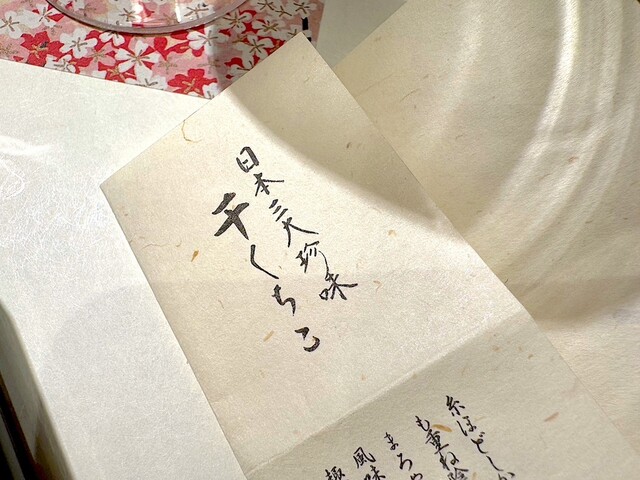 日本三大珍味
干くちこ
糸ほどしか
も重ね
まろや
風味